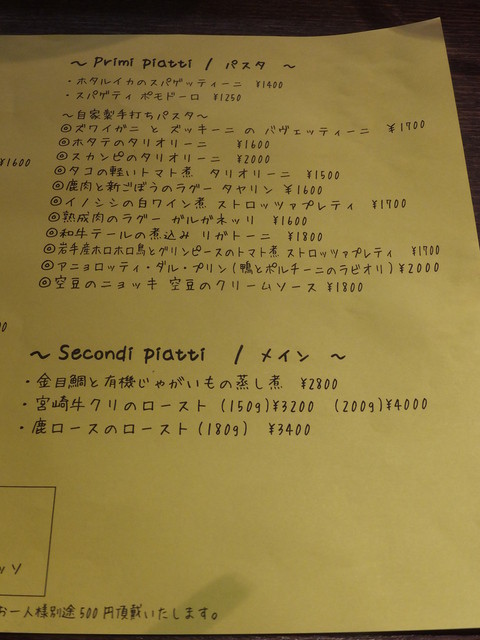 ～ Primi piatti / パスタ ～
・ホタルイカのスパゲッティーニ ¥1400
・スパゲティ ポモドーロ ¥1250
～自家製手打ちパスタ～
◎ズワイガニ と ズッキーニ の バヴェッティーニ ¥1700
◎ホタテのタリオリーニ ¥1600
◎スカンピのタリオリーニ ¥2000
◎タコの軽いトマト煮 タリオリーニ ¥1500
◎鹿肉と新ごぼうのラグー タヤリン ¥1600
◎イノシシの白ワイン煮 ストロッツァプレティ ¥1700
◎熟成肉のラグー ガルガネッリ ¥1600
◎和牛テールの煮込み リガトーニ ¥1800
◎岩手産ホロホロ鳥とグリンピースのトマト煮 ストロッツァプレティ ¥1900
◎アニョロッティ・ダル・プリン(鴨とポルチーニのラビオリ)¥2000
◎空豆のニョッキ 空豆のクリームソース ¥1800
¥1600
～ Secondi piatti / メイン ～
・金目鯛と有機じゃがいもの蒸し煮 ¥2800
・宮崎牛クリのロースト (150g)¥3200 (200g)¥4000
・鹿ロースのロースト(180g) ¥3400
お一人様別途500円頂戴いたします。